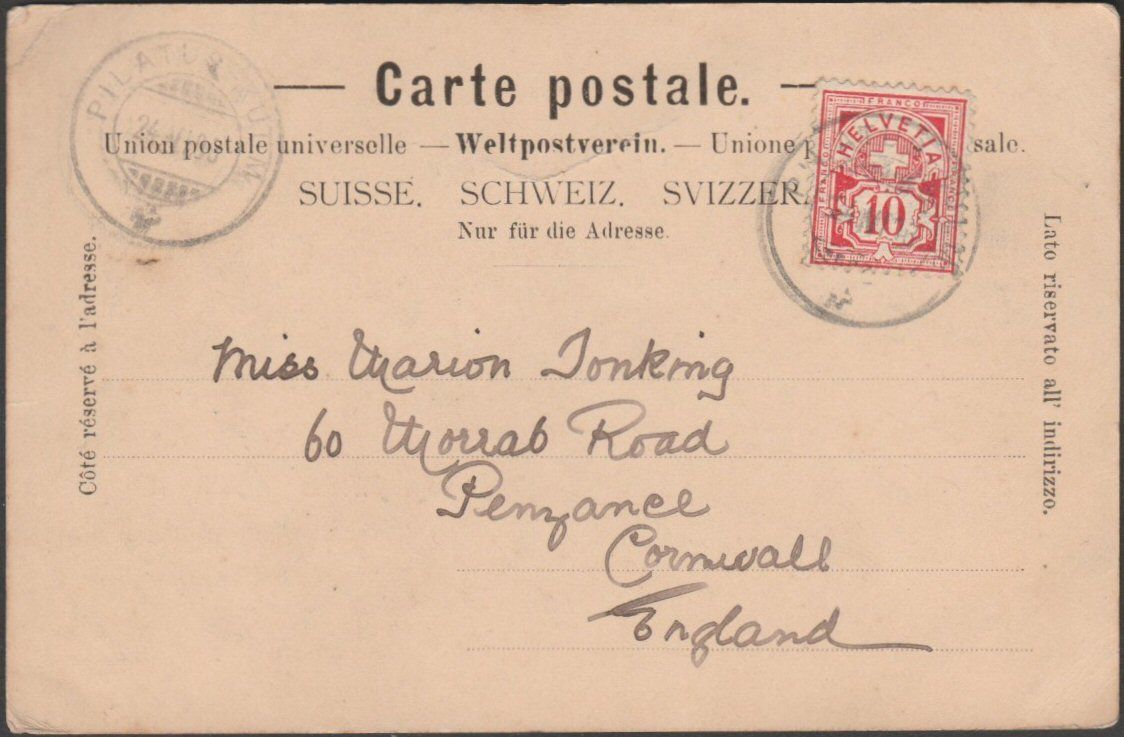 Carte postale.
Union postale universelle — Weltpostverein. — Unione
SUISSE. SCHWEIZ. SVIZZERA
Nur für die Adresse.
Côté réservé à l'adresse.
Lato riservato all' indirizzo.
PILATUS-KULM
FRANCO
HELVETIA
FRANCO
10
Miss Marion Tonking
60 Morrab Road
Penzance
Cornwall
England